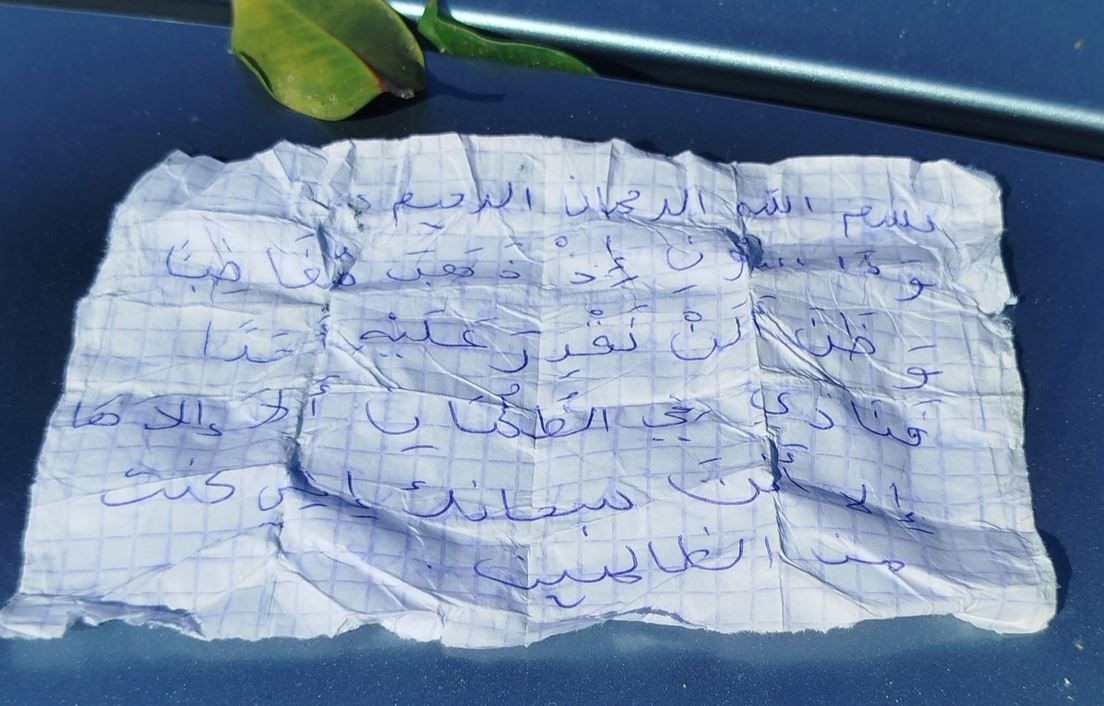 بسم الله الرحمان الرحيم
إِذْ ذَهَبَ مُغَاضِبَا
وَظَنَ أَلَنْ نَقْدِرَ عَلَيْهِ أَحَدَا
فَنَادَى فِي الظُلُمَا يَا ألا إلاها
إلا أَنْتَ سبحانك إني كنت
من الظالمين